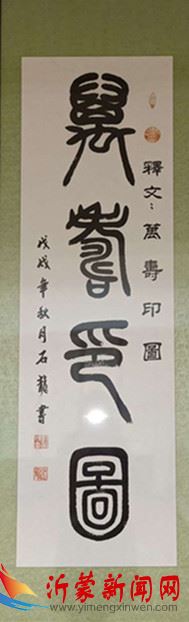 釋文：萬壽印圖
萬壽印圖
戊戌年秋月石龍書
沂蒙新闻网
www.yimengxinwen.com